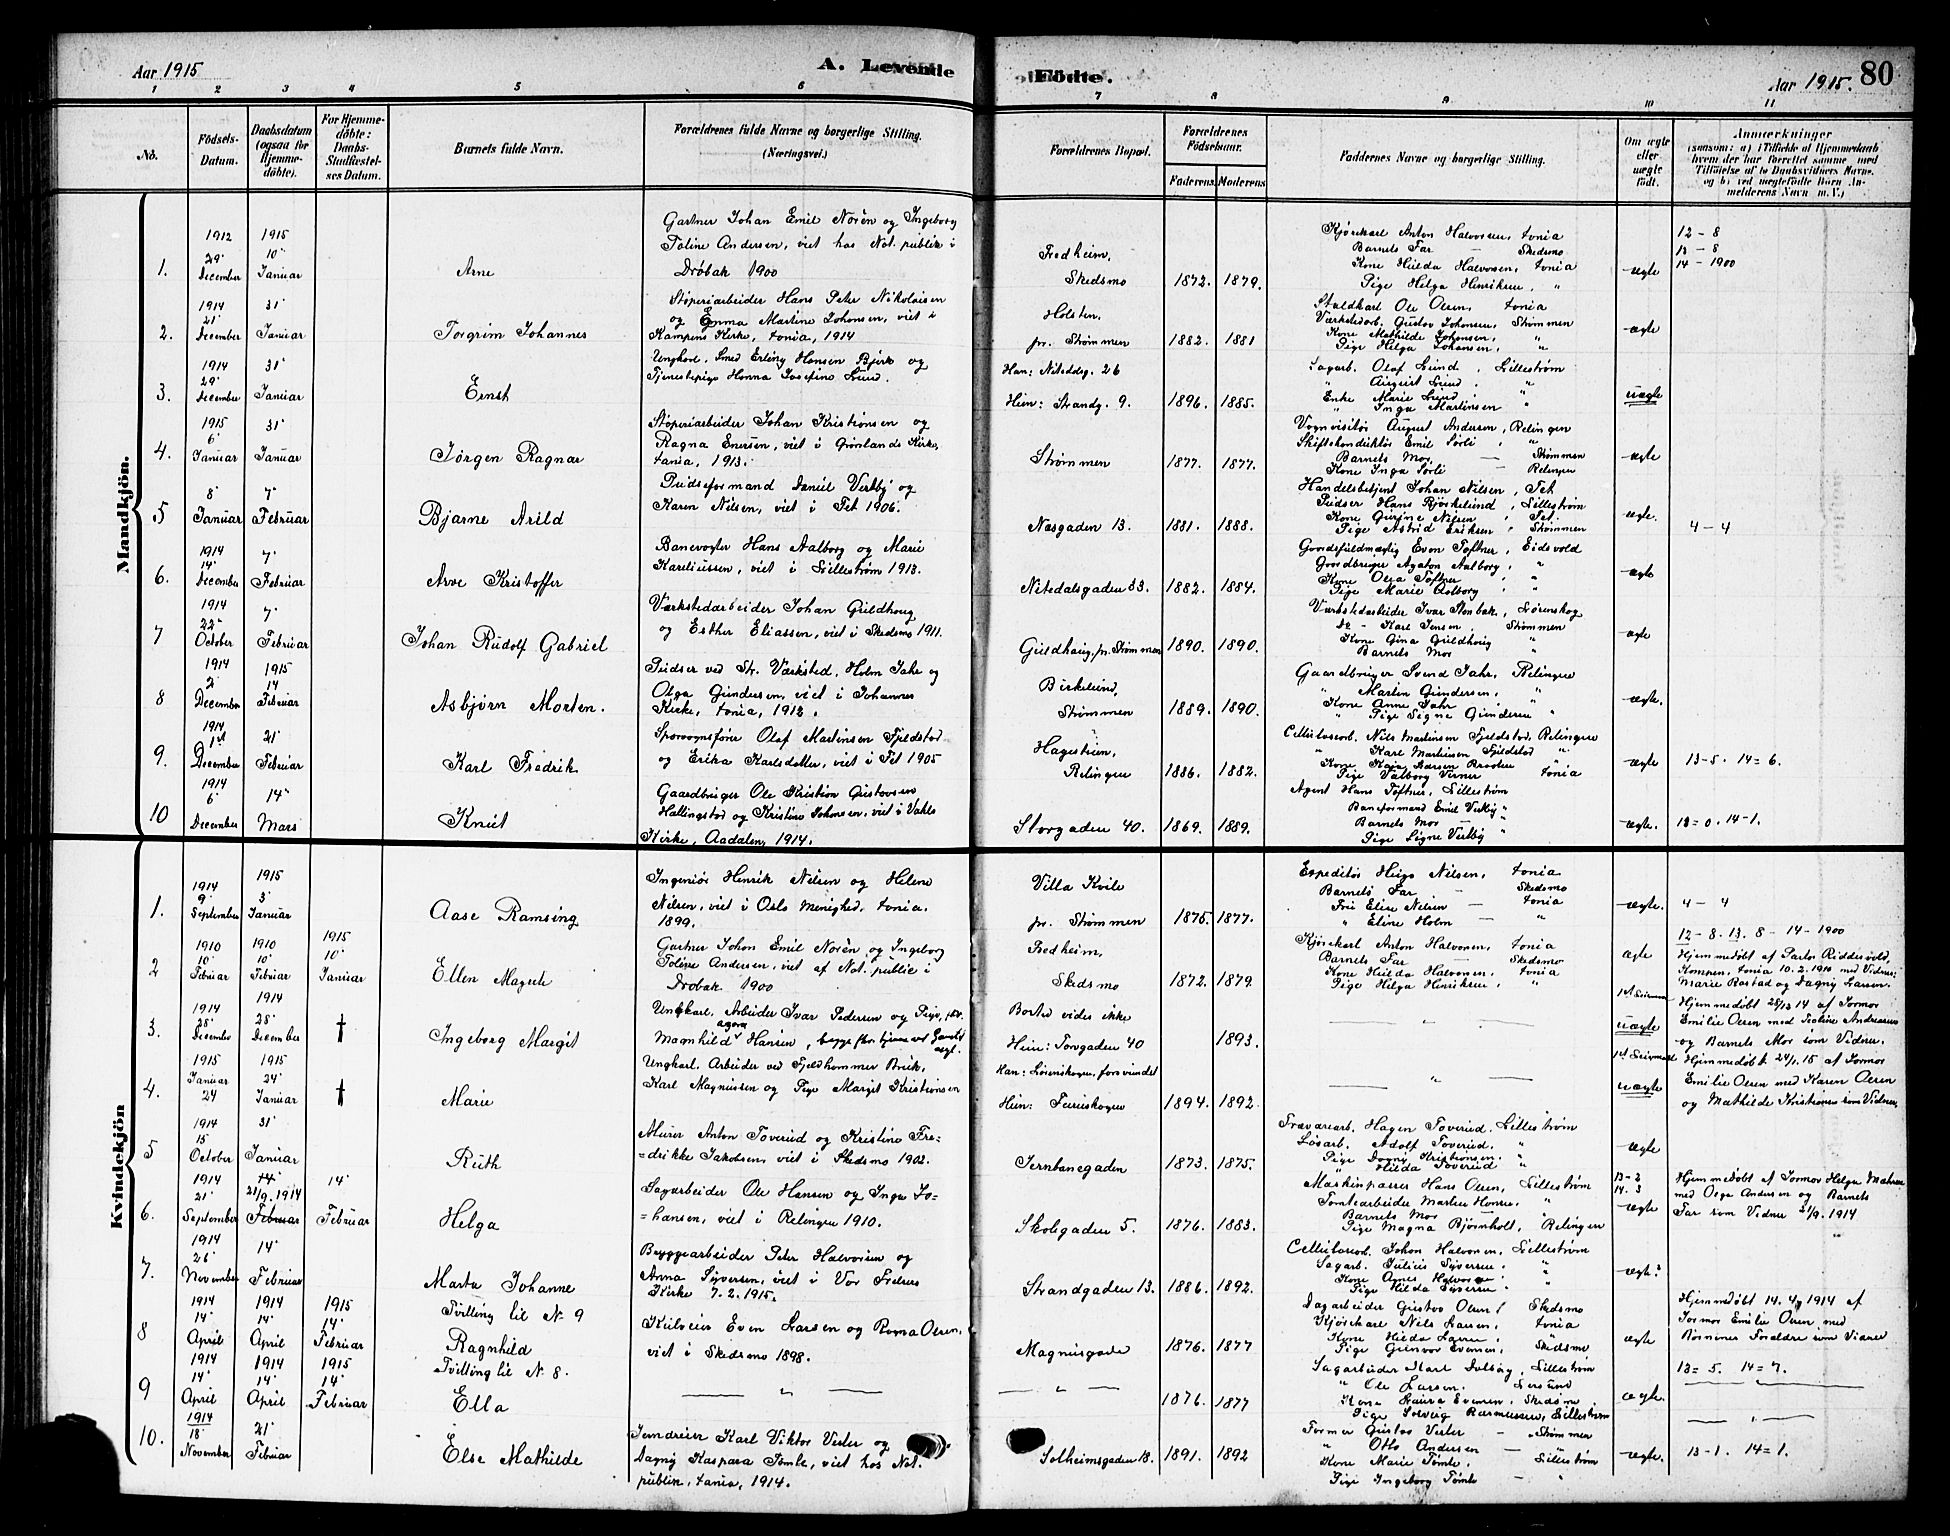 Aar 1915
A. Levende
Födte.
Aar 1915. 80
1 2 3 4 5 6 7 8 9 10 11
No.
Födsels-
Datum.
Daabsdatum
(ogsaa for
Hjemme-
döbte).
For Hjemme-
döbte:
Daabs-
Stadfæstel-
ses Datum.
Barnets fulde Navn.
Forældrenes fulde Navne og borgerlige Stilling.
(Næringsvei.)
Forældrenes Bopæl.
Forældrenes
Födselsaar.
Faderens. Moderens.
Faddernes Navne og borgerlige Stilling.
Om ægte
eller
uægte
födt.
Anmærkninger
(saasom: a) i Tilfælde af Hjemmedaab
hvem der har forrettet samme, med
Tilföielse af to Daabsvidners Navne,
og b) ved uægtefödte Börn An-
melderens Navn m. V.)
Mandkjön.
1.
1912
29
December
1915
10
Januar
Arne
Gartner Johan Emil Norén og Ingeborg
Toline Andersen, viet hos Not. publik i
Drøbak 1900
Fredheim,
Skedsmo
1872. 1879.
Kjørekarl Anton Halvorsen, Tonia
Barnets Far — Skedsmo
Kone Hilda Halvorsen, Tonia
Pige Helga Henriksen, "
ægte
12 - 8
13 - 8
14 - 1900
2.
1914
21
December
31
Januar
Torgrim Johannes
Støperiarbeider Hans Peter Nikolaisen
og Emma Martine Johansen, viet i
Kampens Kirke, Tonia, 1914
Holsten,
pr. Strømmen
1882. 1881
Staldkarl Ole Olsen, Tonia
Værkstedarb. Gustav Johansen, Strømmen
Kone Mathilde Johansen, "
Pige Helga Johansen, "
ægte
3.
1914
29
December
31
Januar
Ernst
Ungkarl, Smed Erling Hansen Bjerk og
Tjenestepige Hanna Josefine Lund.
Han: Nitedalsg. 26
Hun: Strandg. 9.
1896. 1885.
Sagarb. Olaf Lund, Lillestrøm
" August Lund, "
Enke Marie Lund, "
" Inga Martinsen "
uægte
4.
1915
6
Januar
31
Januar
Jørgen Ragnar
Støperiarbeider Johan Kristiansen og
Ragna Enersen, viet i Grønlands Kirke,
Tania, 1913.
Strømmen
1877. 1877.
Vognvisitør August Andersen, Relingen
Skiftekonduktør Emil Sørli, "
Barnets Mor, — Strømmen
Kone Inga Sørli — Relingen
ægte
5
8
Januar
7
Februar
Bjarne Arild
Pudseformand Daniel Verkby og
Karen Nilsen, viet i Fet 1906.
Næsgaden 13.
1881. 1888.
Handelsbetjent Johan Nilsen, Fet
Pudser Hans Bjørkelund, Lillestrøm
Kone Gurine Nilsen, Fet
Pige Astrid Eriksen, Strømmen
ægte.
4 - 4
6.
1914
14
December
7
Februar
Arve Kristoffer
Banevogter Hans Aalborg og Marie
Kareliussen, viet i Lillestrøm 1913.
Nitedalsgaden 33.
1882. 1884.
Gaardsfuldmægtig Even Toftner, Eidsvold
Gaardbruger Agaton Aalborg, "
Kone Olga Toftner, "
Pige Marie Aalborg, "
ægte
7
1914
22
October
7
Februar
Johan Rudolf Gabriel
Værkstedarbeider Johan Guldhaug
og Esther Eliassen, viet i Skedsmo 1911.
Guldhaug, pr. Strømmen
1890. 1890.
Værkstedarbeider Ivar Stenbæk, Lørenskog
do - Karl Jensen, Strømmen
Kone Gina Guldhaug "
Barnets Mor "
ægte
8
1914
2
December
1915
14
Februar
Asbjørn Morten.
Pudser ved Str. Værksted, Holm Jahr og
Olga Gundersen, viet i Johannes
Kirke, Tonia, 1912.
Birkelund,
Strømmen
1889. 1890.
Gaardbruger Svend Jahr, Relingen
" Martin Gundersen, "
Kone Anne Jahr "
" Pige Signe Gundersen "
ægte.
9.
1914
1st
December
21
Februar
Karl Fredrik
Sporvognsfører Olaf Martinsen Fjeldstad
og Erika Karlsdatter, viet i Fet 1905
Hagestuen,
Relingen
1886. 1882.
Cellulosearb. Nils Martinsen Fjeldstad, Relingen
" Karl Martinsen Fjeldstad "
Kone Kaja Larsen Braaten "
Pige Valborg Verner Tonia
ægte
13-5. 14=6.
10
1914
6
December
14
Mars
Knut
Gaardbruger Ole Kristian Gustavsen
Hallingstad og Kristine Johansen, viet i Vahls
Kirke, Aadalen, 1914.
Storgaden 40.
1869. 1889.
Agent Hans Toftner, Lillestrøm
Baneformand Emil Verkby "
Barnets Mor — "
Pige Signe Verkby "
ægte.
13=0. 14-1.
Kvindekjön
1.
1914
9
September
1915
3
Januar
Aase Ramsing
Ingeniør Henrik Nielsen og Helene
Nilsen, viet i Oslo Menighed, Tonia.
1899.
Villa Kvile
pr. Strømmen
1875. 1877.
Expeditør Hugo Nilsen, Tonia
Barnets Far — Skedsmo
Fru Elise Nilsen — Tonia
" Eline Holm — "
ægte.
4 - 4
2
1910
10
Februar
1910
10
Februar
1915
10
Januar
Ellen Magrete
Gartner Johan Emil Norén og Ingeborg
Toline Andersen, viet af Not. public i
Drøbak 1900
Fredheim,
Skedsmo
1872. 1879
Kjørekarl Anton Halvorsen, Tonia
Barnets Far — Skedsmo
Kone Hilda Halvorsen, Tonia
Pige Helga Henriksen, "
ægte
12 - 8. 13. 8 - 14 - 1900
Hjemmedøbt af Pastor Riddervold,
Kampen, Tonia 10.2.1910 med Vidner:
Marie Rostad og Dagny Larsen.
3.
1914
28
December
1914
28
December
†
Ingeborg Margit
Ungkarl, Arbeider Ivar Pedersen og Pige,
Magnhild Agora Hansen,
Bosted vides ikke
Hun: Torvgaden 40
1893.
— " —
uægte
Hjemmedøbt 28/12 14 af Jormor
Emilie Olsen med Andreasen
og Barnets Mor som Vidner.
4.
1915
Januar
24
1915
24
Januar
†
Marie
Ungkarl, Arbeider ved Fjeldhammer Bruk,
Karl Magnussen og Pige Margit Kristiansen
Han: Lørenskogen, forsvundet
Hun: Furuskogen
1894. 1892.
— " —
uægte
Hjemmedøbt 24/1. 15 af Jormor
Emilie Olsen med Karen Olsen
og Mathilde Kristiansen som Vidner.
5
1914
15
October
31
Januar
Ruth
Murer Anton Toverud og Kristine Fre=
=drikke Jakobsen, viet i Skedsmo 1902.
Jernbanegaden
1873. 1875.
Trævarearb. Hagen Toverud, Lillestrøm
Løsarb. Adolf Toverud, "
Pige Dagny Kristiansen, "
" Hilda Toverud "
ægte
6.
1914
21
September
14
21/9. 1914
Februar
14
Februar
Helga
Sagarbeider Ole Hansen og Inga Jo=
=hansen, viet i Relingen 1910.
Skolegaden 5.
1876. 1883.
Maskinpasser Hans Olsen, Lillestrøm
Tomtearbeider Martin Hansen, "
Barnets Mor "
Pige Magna Bjørnholt, Relingen
ægte
13-2
14.3
Hjemmedøbt af Jormor Helga Madsen
med Olga Andersen og Barnets
Far som Vidner 21/9. 1914
7.
1914
26
November
14
Februar
Marta Johanne
Byggearbeider Peter Halvorsen og
Anna Syversen, viet i Vor Frelsers
Kirke 7.2.1915.
Strandgaden 13.
1886. 1892.
Cellulosearb. Johan Halvorsen, Lillestrøm
Sagarb. Julius Syversen, "
Kone Agnes Halvorsen "
Pige Hilda Syversen "
ægte?
8
1914
14
April
1914
14
April
1915
14
Februar
Tvilling til N. 9
Ragnhild
Kulveier Even Larsen og Roma Olsen,
viet i Skedsmo 1898.
Magnusgade
1876. 1877
Dagarbeider Gustav Olsen, Skedsmo
Kjørekarl Nils Larsen, Tonia
Kone Hilda Larsen, "
Pige Gunvor Evensen, Skedsmo
ægte
Hjemmedøbt 14.4. 1914 af
Jormor Emilie Olsen med
Barnets Forældre som Vidner
13=5. 14=7.
9
1914
14
April
1914
14
April
1915
14
Februar
Tvilling til N. 8.
Ella
— " —
— " —
1876. 1877
Sagarbeider Karl Solberg, Lillestrøm
" Ole Larsen,
Kone Laura Evensen, Skedsmo
Pige Solveig Rasmussen, Lillestrøm
ægte.
— " —
10.
1914
18
November
21
Februar
Else Mathilde
Jerndreier Karl Viktor Vester og
Dagny Kaspara Tømte, viet hos Not.
publik, Tania, 1914.
Solheimsgaden 18.
1891. 1892
Former Gustav Vester — Strømmen
" Otto Andersen — "
Kone Marie Tømte, Lillestrøm
Pige Ingeborg Tømte — "
ægte.
13-1. 14=1.